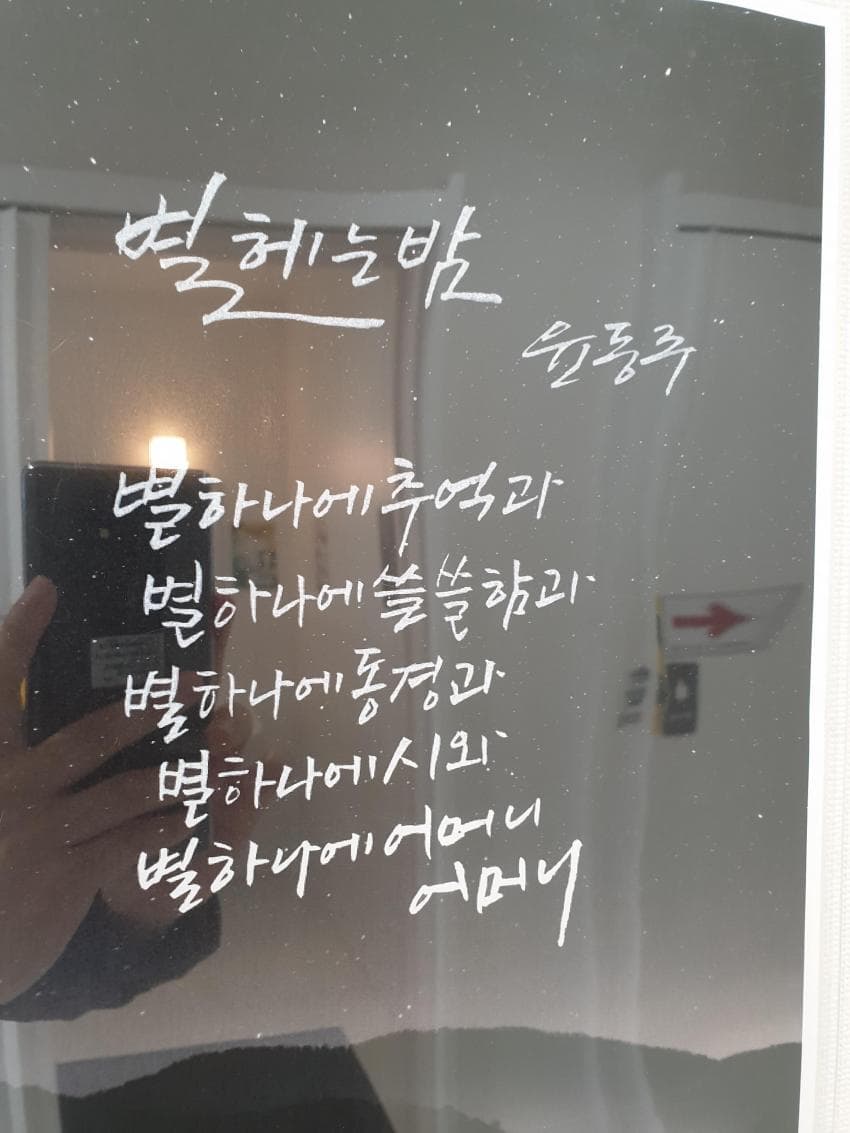 별 헤는 밤
윤동주
별 하나에 추억과
별 하나에 쓸쓸함과
별 하나에 동경과
별 하나에 시와
별 하나에 어머니
어머니